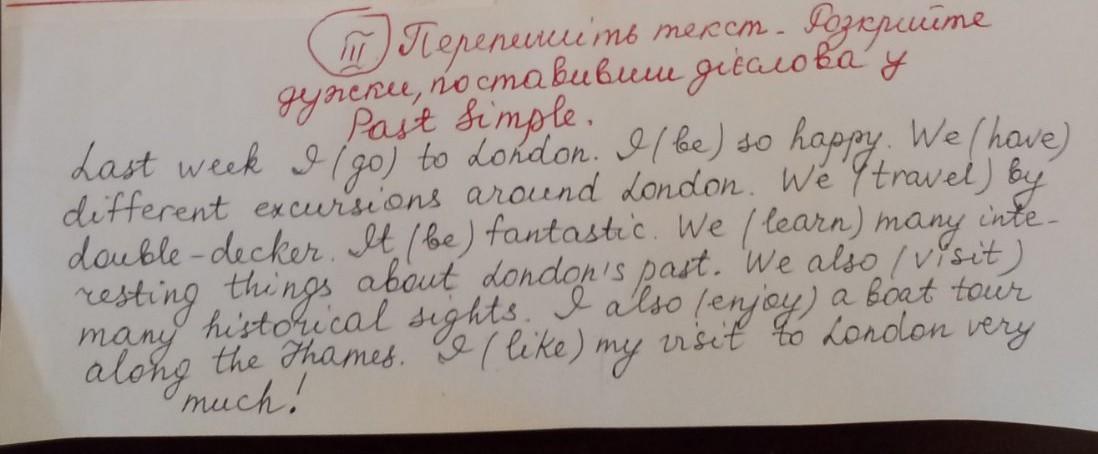 III Перепишіть текст. Розкрийте
дужки, поставивши дієслова у
Past Simple.
Last week I (go) to London. I (be) so happy. We (have)
different excursions around London. We (travel) by
double-decker. It (be) fantastic. We (learn) many inte-
resting things about London's past. We also (visit)
many historical sights. I also (enjoy) a boat tour
along the Thames. I (like) my visit to London very
much!